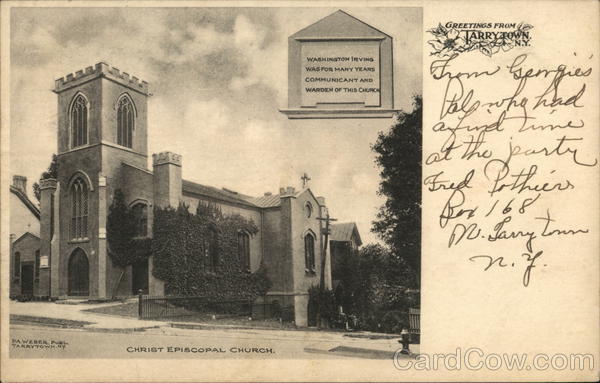 GREETINGS FROM
TARRYTOWN.
N.Y.
WASHINGTON IRVING
WAS FOR MANY YEARS
COMMUNICANT AND
WARDEN OF THIS CHURCH
From Georgies'
Pals who had
a fine time
at the party
Fred Pothier
Box 168
N. Tarrytown
N.Y.
P.A. WEBER, PUBL.
TARRYTOWN, N.Y.
CHRIST EPISCOPAL CHURCH.
CardCow.com